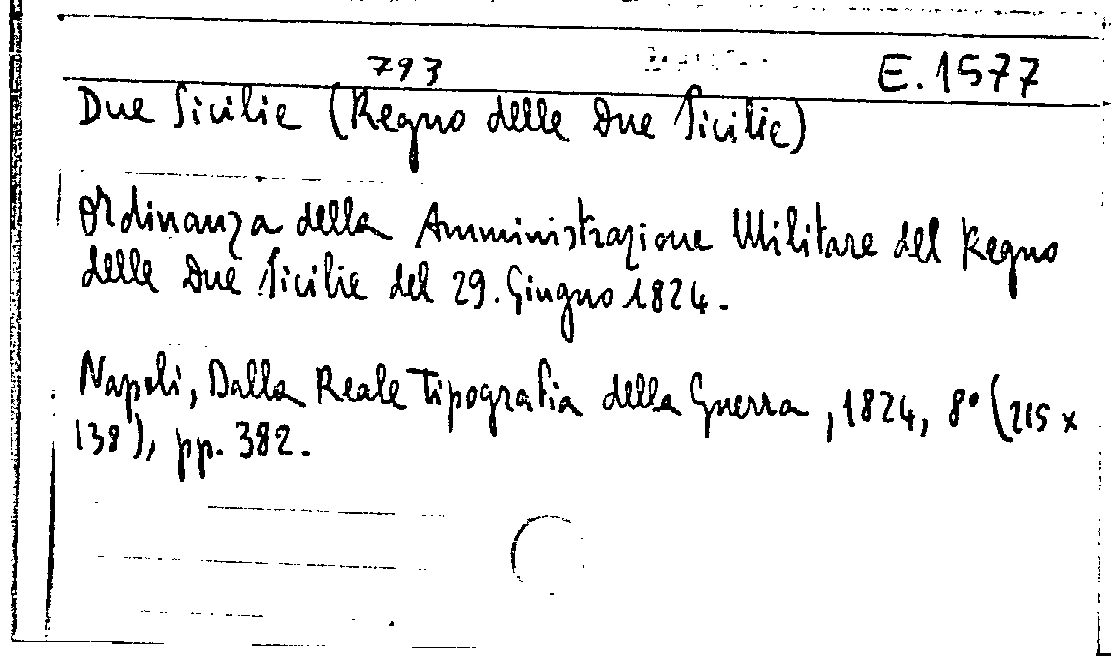 793 E.1577
Due Sicilie (Regno delle Due Sicilie)
Ordinanza della Amministrazione Militare del Regno
delle Due Sicilie del 29. Giugno 1824.
Napoli, Dalla Reale Tipografia della Guerra, 1824, 8° (215 x
138), pp. 382.